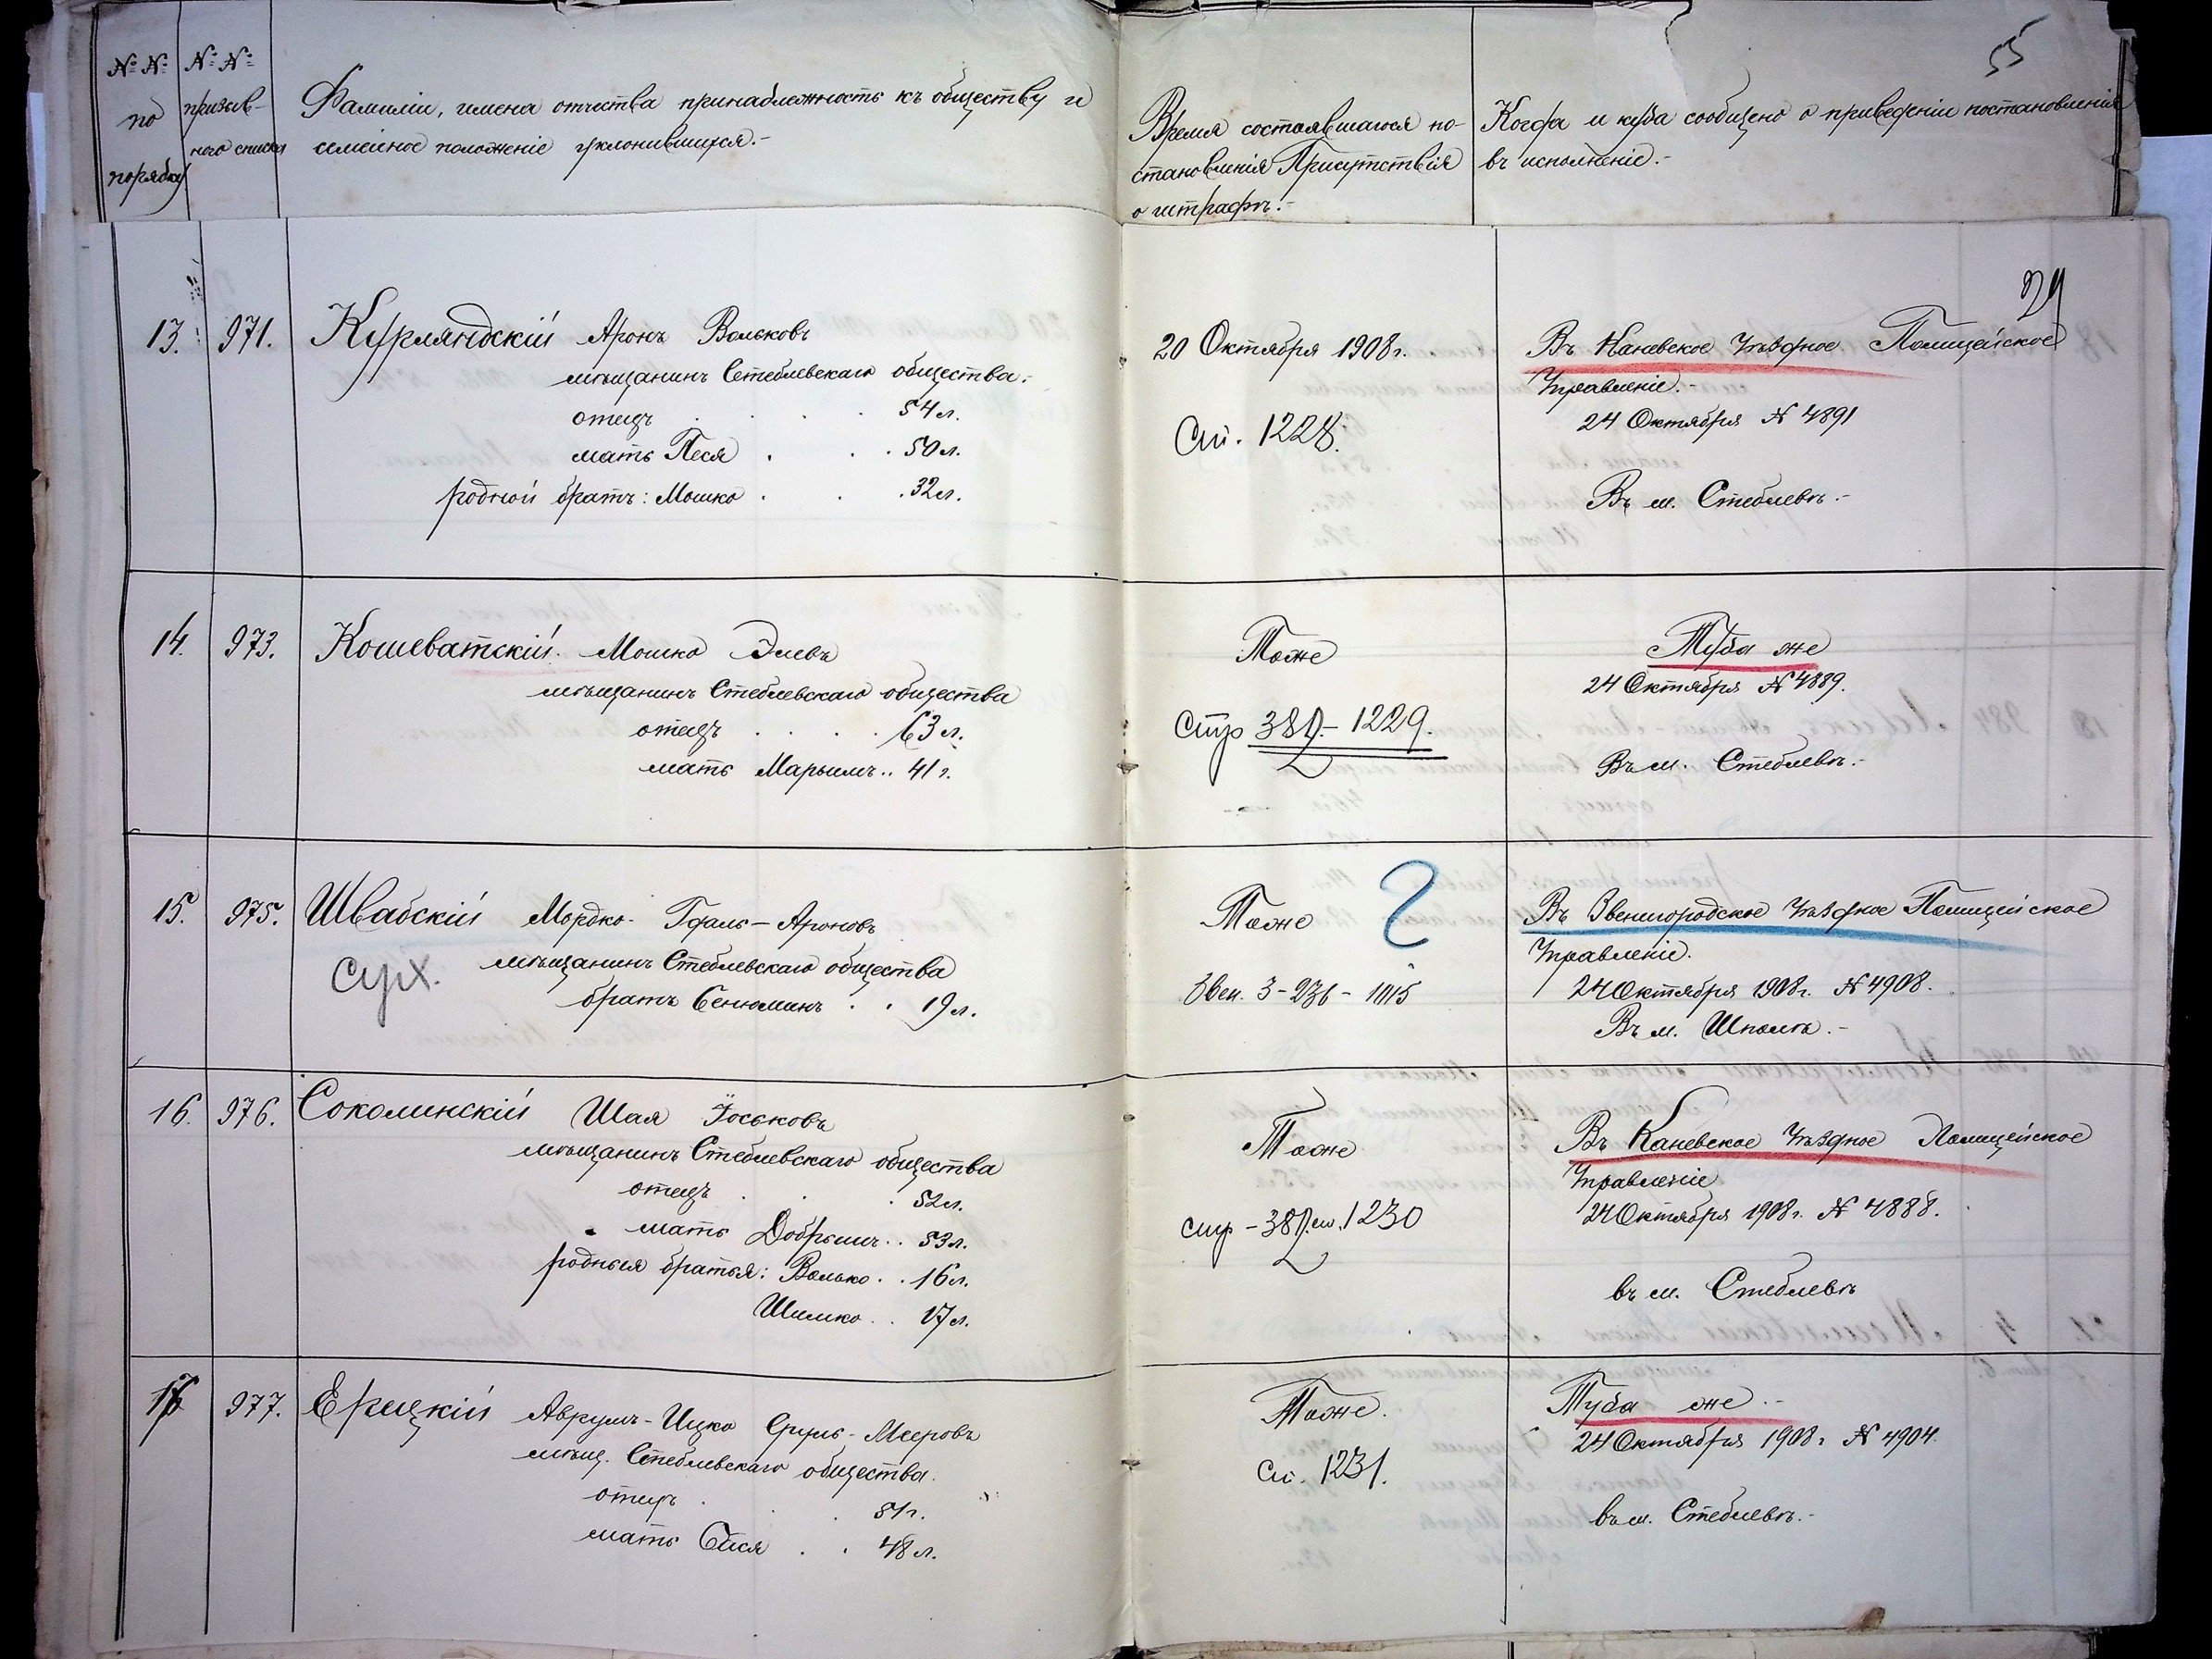 № № по порядку
№ № призыв-
ного списка
Фамиліи, имена отчества принадлежность къ обществу и
семейное положеніе уклонившихся.-
Время состоявшагося по-
становленія Присутствія
о штрафѣ.-
Когда и куда сообщено о приведеніи постановленія
въ исполненіе.-
55
13. 971. Курляндскій Аронъ Вольковъ
мѣщанинъ Стеблевскаго общества.-
отецъ . . . . 54 л.
мать Песя . . . 50 л.
родной братъ: Мошко . . . 32 л.
20 Октября 1908 г.
Сп. 1228.
Въ Каневское Уѣздное Полицейское
Управленіе.-
24 Октября № 4891
Въ м. Стеблевѣ.-
14. 973. Кошеватскій. Мошко Элевъ
мѣщанинъ Стеблевскаго общества
отецъ . . . . 63 л.
мать Марьимъ .. 41 г.
Тоже
1229.
Туда же
24 Октября № 4889.
Въ м. Стеблевѣ.-
15. 975. Швабскій Мордко- Гдаль-Ароновъ
мѣщанинъ Стеблевскаго общества
братъ Бенюминъ . . 19 л.
Тоже
Звен. 3-236-1015
Въ Звенигородское Уѣздное Полицейское
Управленіе.
24 Октября 1908 г. № 4908.
Въ м. Шполѣ.-
16. 976. Соколинскій Шая Іоськовъ
мѣщанинъ Стеблевскаго общества
отецъ . . . 52 л.
мать Добрышъ .. 53 л.
родныя братья: Волько . . 16 л.
Шимко . . 17 л.
Тоже
1230
Въ Каневское Уѣздное Полицейское
Управленіе
24 Октября 1908 г. № 4888.
въ м. Стеблевѣ
17 977. Ерицкій Аврумъ-Ицко Сруль-Мееровъ
мѣщ. Стеблевскаго общества.
отецъ . . . 51 г.
мать . . 48 л.
Тоже.
Сп. 1231.
Туда же.-
24 Октября 1908 г № 4904.
въ м. Стеблевѣ.-